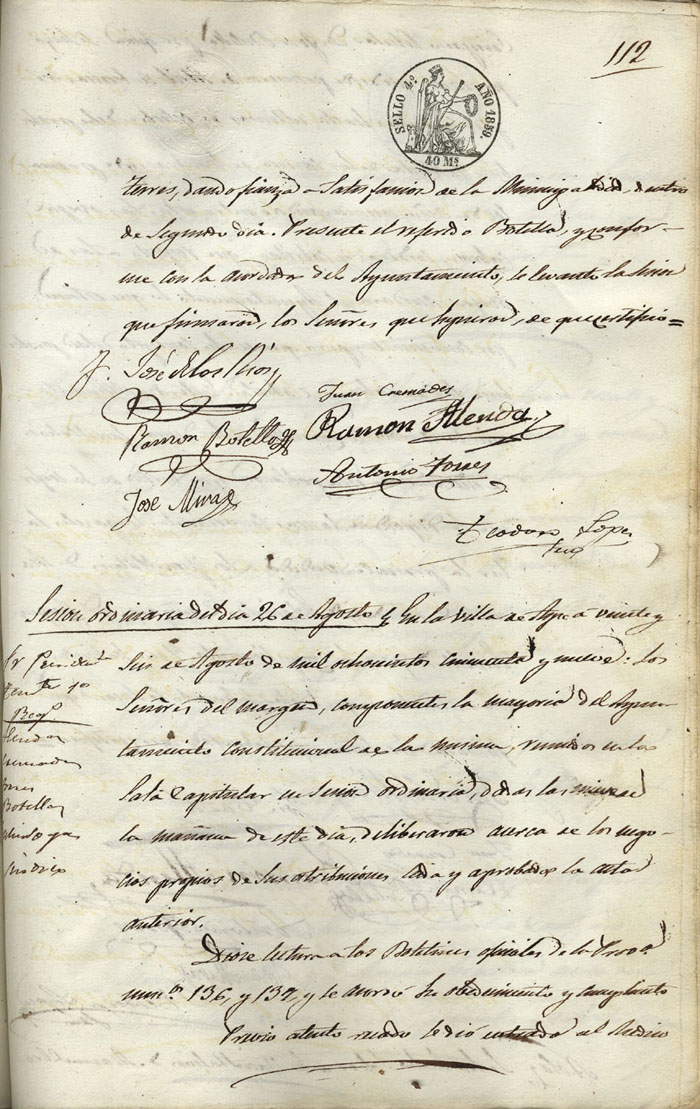 112
SELLO 4º AÑO 1859.
40 Ms.
Torres, dando fianza a satisfaccion de la Municipalidad, dentro
de segundo dia. Presente el referido Botella, y confor-
me con lo acordado del Ayuntamiento, se levanto la sesion
que firmaron, los Señores que supieron, de que certifico=
José de los Rios
Juan Cremades
Ramon Botella
Ramon Alenda
Antonio Torres
José Mira
Teodoro Lopez
Sesion ordinaria del dia 26 de Agosto
En la villa de Aspe á veinte y
Sr Presidte
seis de Agosto de mil ochocientos cincuenta y nueve: Los
Tente 1º
Señores del margen, componentes la mayoria del Ayun-
tamiento Constitucional de la misma, reunidos en la
Cremades
Torres
Sala Capitular en sesion ordinaria, dadas las nueve de
Botella
la mañana de este dia, deliberaron acerca de los nego-
Sindico
cios propios de sus atribuciones leida y aprobada la acta
anterior.
Diose lectura a los Boletines oficiales de la Prova
numos 136, y 137, y se acordó su obedecimiento y cumplimto
Previo atento recado se dió entrada al Medico